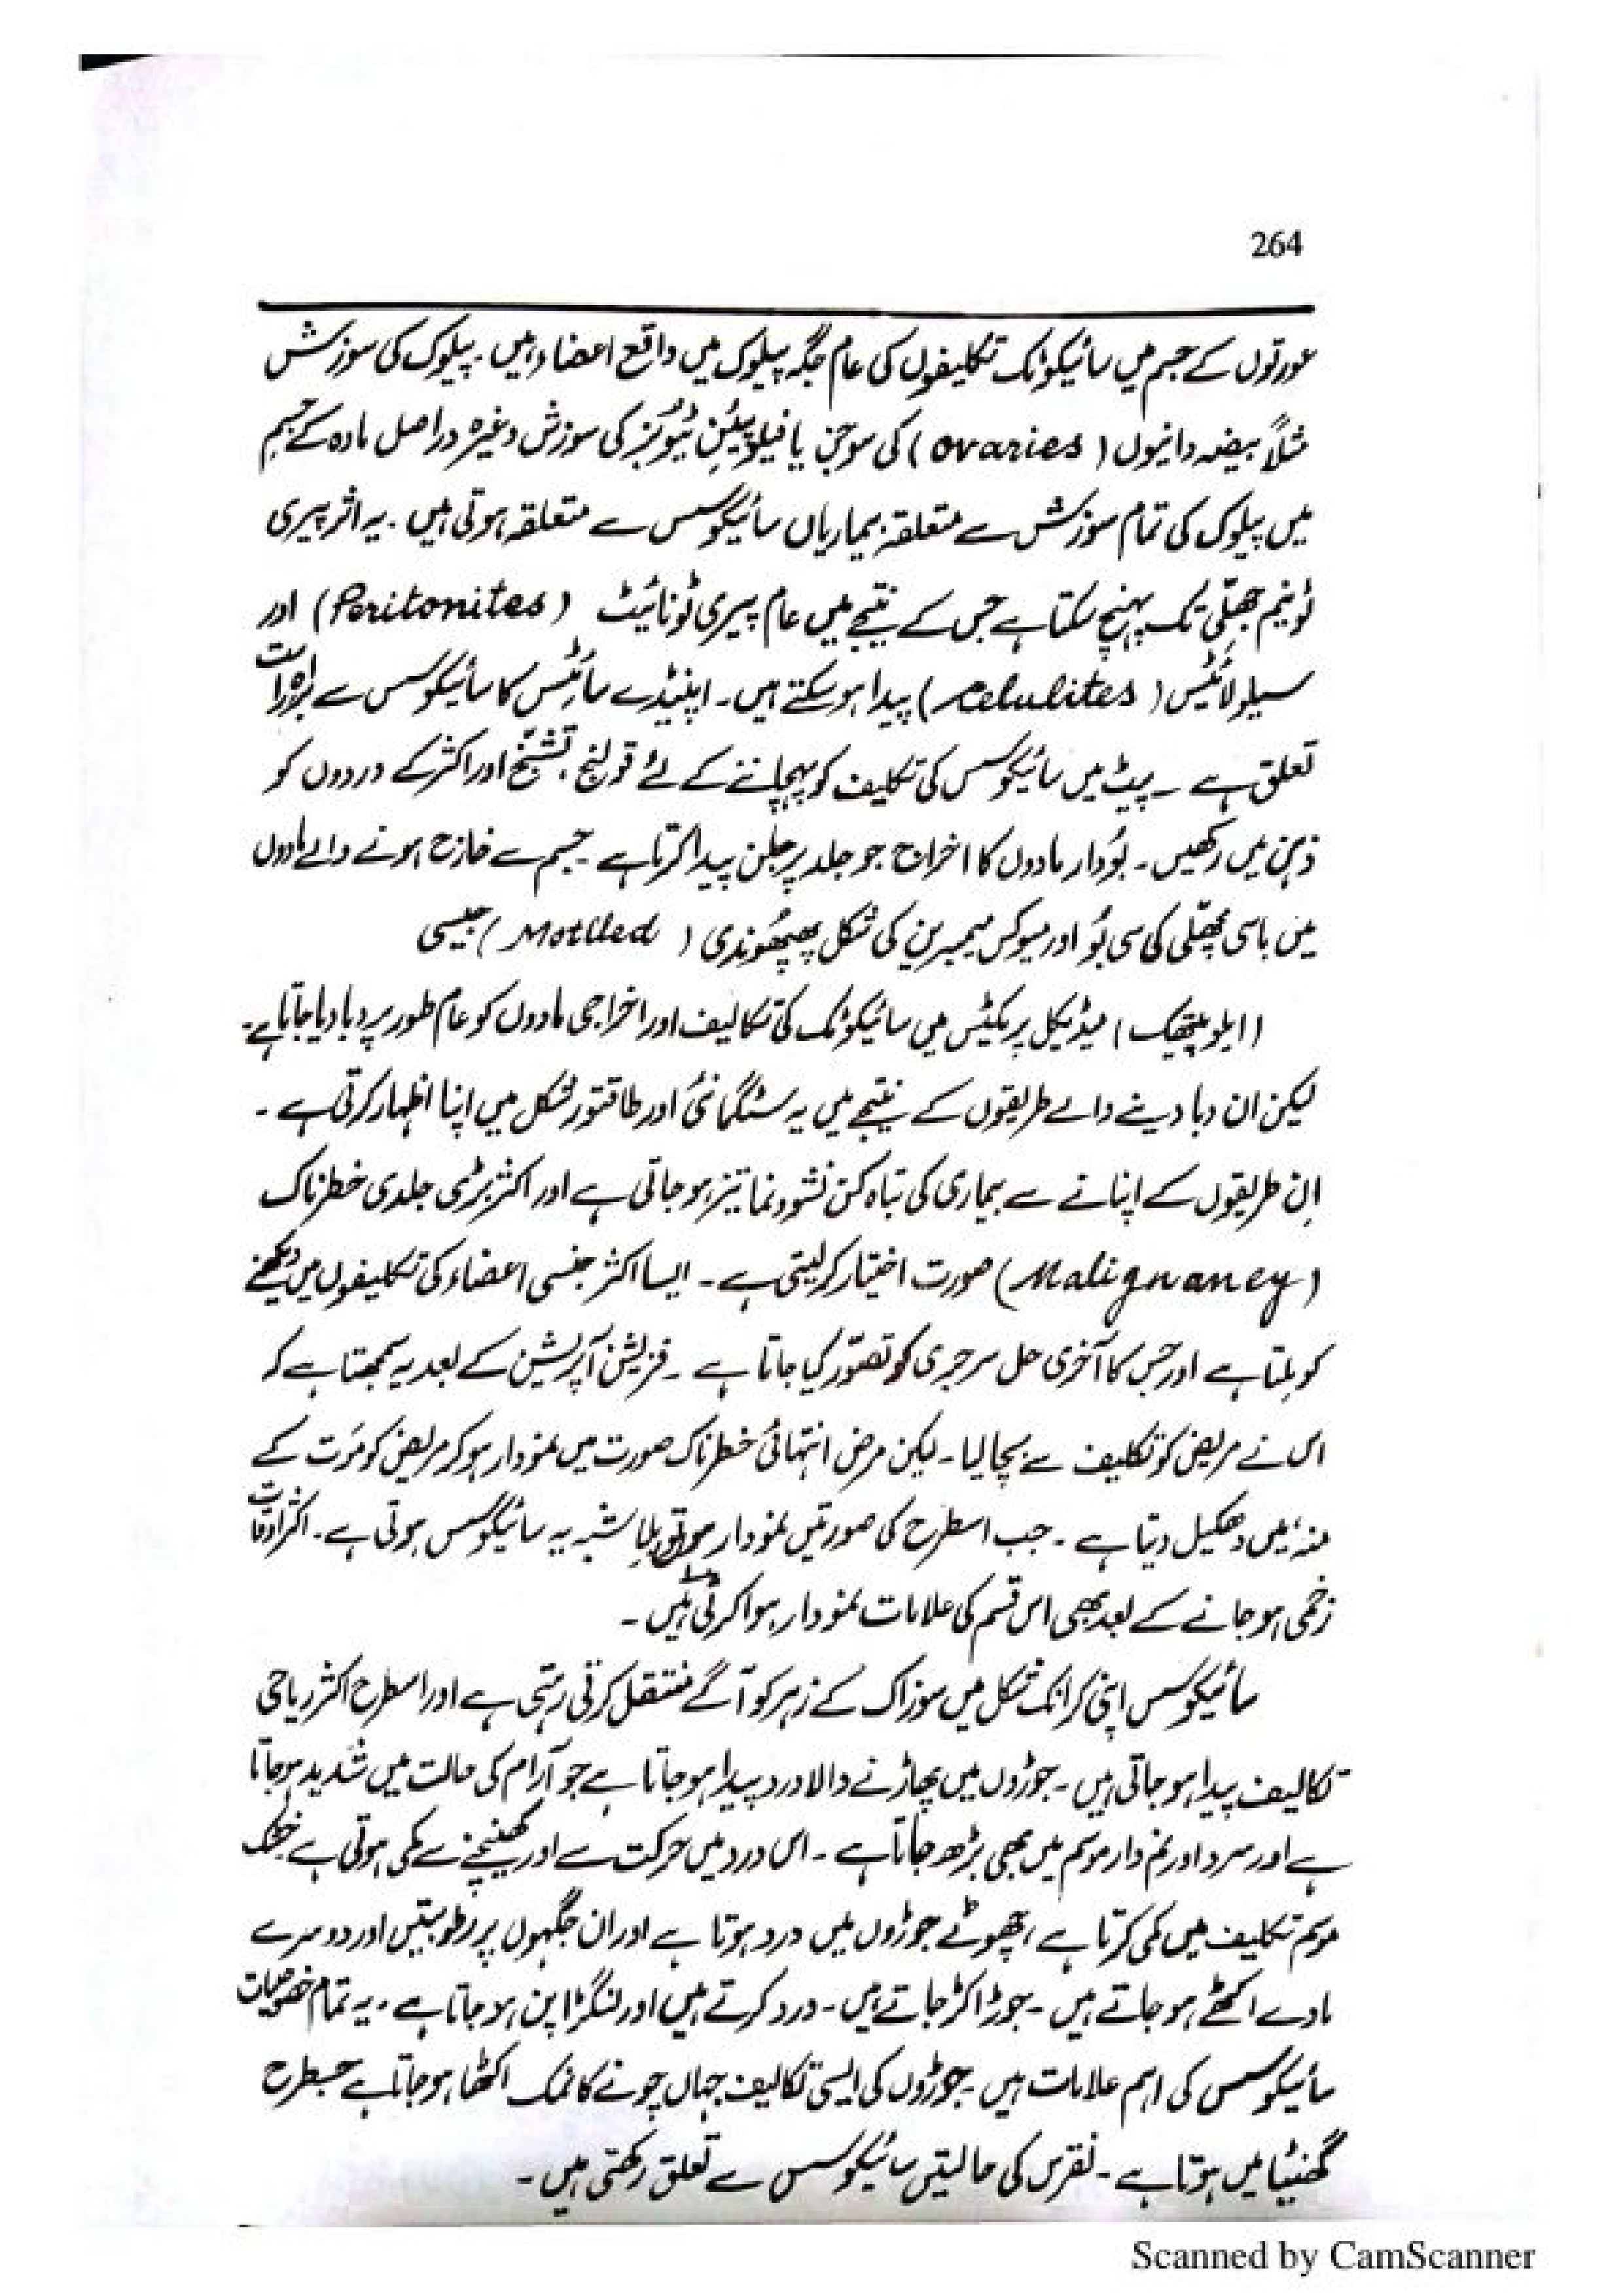 264
عورتوں کے جسم میں سائیکوٹک تکلیفوں کی عام جگہ پیلوک میں واقع اعضاء ہیں۔ پیلوک کی سوزش
مثلاً بیضہ دانیوں (ovaries) کی سوجن یا فیلوپیئن ٹیوبز کی سوزش وغیرہ دراصل مادہ کے جسم
میں پیلوک کی تمام سوزش سے متعلقہ بیماریاں سائیکوسس سے متعلقہ ہوتی ہیں۔ یہ اثر پیری
ٹونیم جھلّی تک پہنچ سکتا ہے جس کے نتیجے میں عام پیری ٹونائیٹ (Peritonites) اور
سیلولائٹس (celulites) پیدا ہو سکتے ہیں۔ اپنیڈے سائٹس کا سائیکوسس سے براہ راست
تعلق ہے ۔ پیٹ میں سائیکوسس کی تکلیف کو پہچاننے کے لئے قولنج، تشنّج اور اکثر کے دردوں کو
ذہن میں رکھیں۔ بُودار مادوں کا اخراج جو جلد پر جلن پیدا کرتا ہے ۔ جسم سے خارج ہونے والے مادوں
میں باسی مچھلی کی سی بُو اور میوکس میمبرین کی شکل پھپھُوندی (Motlled) جیسی
(ایلوپیتھک) میڈیکل پریکٹس میں سائیکوٹک کی تکالیف اور اخراجی مادوں کو عام طور پر دبا دیا جاتا ہے۔
لیکن ان دبا دینے والے طریقوں کے نتیجے میں یہ نئی اور طاقتور شکل میں اپنا اظہار کرتی ہے ۔
اِن طریقوں کے اپنانے سے بیماری کی تباہ کن نشوونما تیز ہو جاتی ہے اور اکثر بڑی جلدی خطرناک
(Malignaney) صورت اختیار کر لیتی ہے ۔ ایسا اکثر جنسی اعضاء کی تکلیفوں میں دیکھنے
کو ملتا ہے اور جس کا آخری حل سرجری کو تصوّر کیا جاتا ہے ۔ فزیشن آپریشن کے بعد یہ سمجھتا ہے کہ
اس نے مریض کو تکلیف سے بچا لیا ۔ لیکن مرض انتہائی خطرناک صورت میں نمودار ہو کر مریض کو موت کے
منہ میں دھکیل دیتا ہے ۔ جب اسطرح کی صورتیں نمودار ہوتی بلا شبہ یہ سائیکوسس ہوتی ہے ۔ اکثر اوقات
زخمی ہو جانے کے بعد بھی اس قسم کی علامات نمودار ہوا کرتی ہیں ۔
سائیکوسس اپنی کرانک شکل میں سوزاک کے زہر کو آگے منتقل کرتی رہتی ہے اور اسطرح اکثر ریاحی
تکالیف پیدا ہو جاتی ہیں ۔ جوڑوں میں پھاڑنے والا درد پیدا ہو جاتا ہے جو آرام کی حالت میں شدید ہو جاتا
ہے اور سرد اور نم دار موسم میں بھی بڑھ جاتا ہے ۔ اس درد میں حرکت سے اور کھینچنے سے کمی ہوتی ہے خشک
موسم تکلیف میں کمی کرتا ہے، چھوٹے جوڑوں میں درد ہوتا ہے اور ان جگہوں پر رطوبتیں اور دوسرے
مادے اکٹھے ہو جاتے ہیں ۔ جوڑ اکڑ جاتے ہیں ۔ درد کرتے ہیں اور لنگڑا پن ہو جاتا ہے ۔ یہ تمام خصوصیات
سائیکوسس کی اہم علامات ہیں ۔ جوڑوں کی ایسی تکالیف جہاں چونے کا نمک اکٹھا ہو جاتا ہے جسطرح
گھنٹیا میں ہوتا ہے ۔ نقرس کی حالیتں سائیکوسس سے تعلق رکھتی ہیں ۔
Scanned by CamScanner